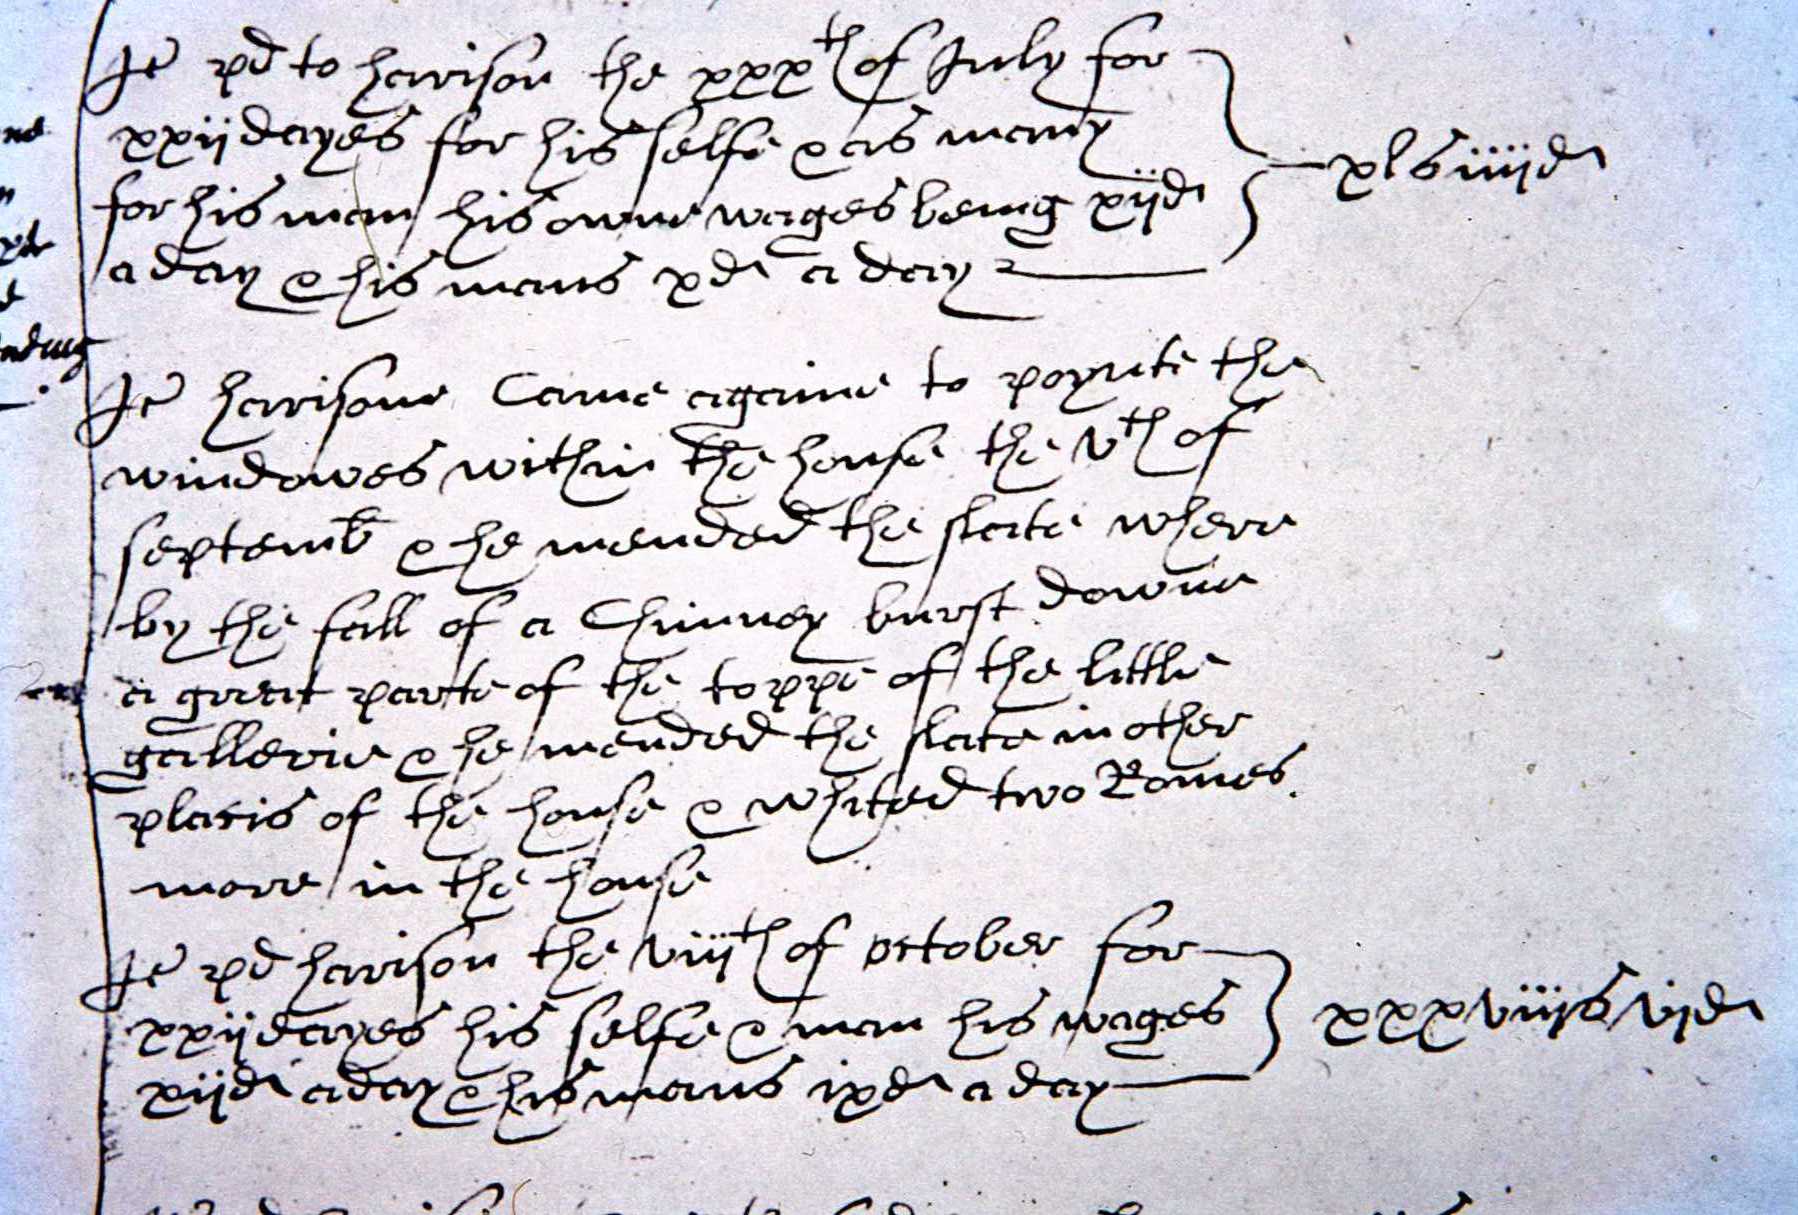 It pd to harrison the xxxth of July for
xxij dayes for his selfe & as many
for his man his owne wages being xijd
a day & his mans xd a day
xls iiijd
It harrisone Came againe to poynte the
windowes within the house the vth of
septemb & he mended the slate where
by the fall of a Chimney burst downe
a great parte of the toppe of the little
gallerie & he mended the slate in other
placis of the house & whited two Romes
more in the house
It pd harison the viijth of october for
xxij dayes his selfe & man his wages
xijd a day & his mans ixd a day
xxxviijs vjd